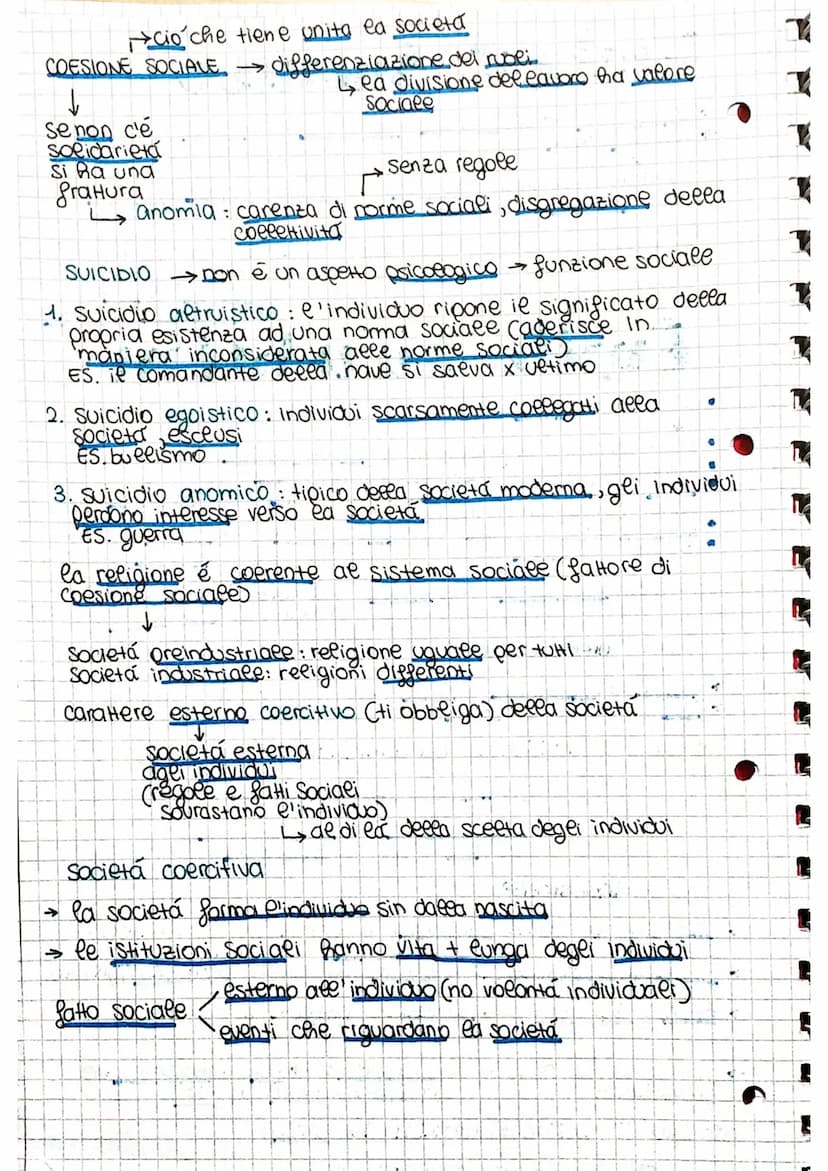 →ciò che tiene unita la società
COESIONE SOCIALE → differenziazione dei ruoli
↳ la divisione del lavoro ha valore
sociale
↓
se non c'é
solidarietá
si ha una
frattura
→ senza regole
↳ anomia : carenza di norme sociali, disgregazione della
collettività
SUICIDIO → non é un aspetto psicologico → funzione sociale
1. suicidio altruistico : l'individuo ripone il significato della
propria esistenza ad una norma sociale (aderisce in
maniera inconsiderata alle norme sociali)
ES. il comandante della nave si salva x ultimo
2. suicidio egoistico : individui scarsamente collegati alla
società, esclusi
ES. bullismo.
3. suicidio anomico : tipico della società moderna, gli individui
perdono interesse verso la società
ES. guerra
la religione é coerente al sistema sociale (fattore di
coesione sociale)
↓
società preindustriale : religione uguale per tutti
società industriale: religioni differenti
carattere esterno coercitivo (ti obbliga) della società
↓
società esterna
agli individui
(regole e fatti sociali
sovrastano l'individuo)
↳ al di là della scelta degli individui
società coercitiva
→ la società forma l'individuo sin dalla nascita
→ le istituzioni sociali hanno vita + lunga degli individui
fatto sociale < esterno all'individuo (no volontà individuali)
eventi che riguardano la società